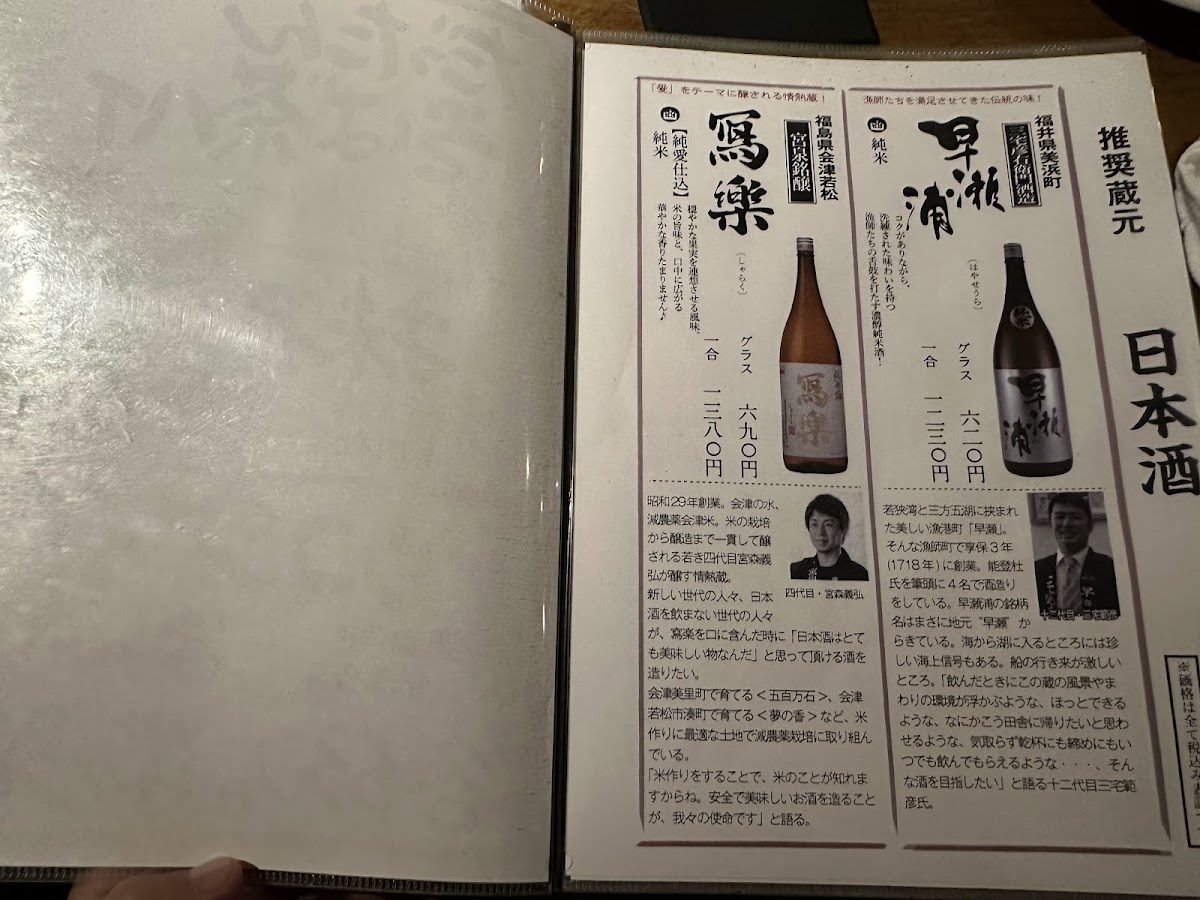 推奨蔵元
日本酒
※価格は全て税込み
漁師たちを満足させてきた伝統の味！
福井県美浜町
三宅彦右衛門酒造
早瀬浦
（はやせうら）
純米
コクがありながら、
洗練された味わいを持つ
漁師たちの舌鼓を打たす濃醇純米酒！
グラス 六二〇円
一合 一二三〇円
純米
早瀬浦
十二代目・三宅範彦
若狭湾と三方五湖に挟まれ
た美しい漁港町「早瀬」。
そんな漁師町で享保３年
(1718年)に創業。能登杜
氏を筆頭に４名で酒造り
をしている。早瀬浦の銘柄
名はまさに地元“早瀬”か
らきている。海から湖に入るところには珍
しい海上信号もある。船の行き来が激しい
ところ。「飲んだときにこの蔵の風景やま
わりの環境が浮かぶような、ほっとできる
ような、なにかこう田舎に帰りたいと思わ
せるような、気取らず乾杯にも締めにもい
つでも飲んでもらえるような・・・、そん
な酒を目指したい」と語る十二代目三宅範
彦氏。
「愛」をテーマに醸される情熱蔵！
福島県会津若松
宮泉銘醸
寫樂
（しゃらく）
【純愛仕込】
純米
穏やかな果実を連想させる風味、
米の旨味と、口中に広がる
華やかな香りたまりません♪
グラス 六九〇円
一合 一三八〇円
寫樂
四代目・宮森義弘
昭和29年創業。会津の水、
減農薬会津米。米の栽培
から醸造まで一貫して醸
される若き四代目宮森義
弘が醸す情熱蔵。
新しい世代の人々、日本
酒を飲まない世代の人々
が、寫楽を口に含んだ時に「日本酒はとて
も美味しい物なんだ」と思って頂ける酒を
造りたい。
会津美里町で育てる＜五百万石＞、会津
若松市湊町で育てる＜夢の香＞など、米
作りに最適な土地で減農薬栽培に取り組ん
でいる。
「米作りをすることで、米のことが知れま
すからね。安全で美味しいお酒を造ること
が、我々の使命です」と語る。